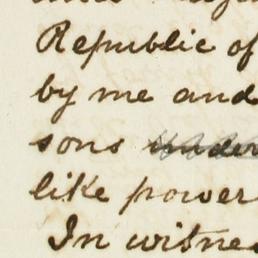 Republic of
by me and
sons under
like power
In witnes